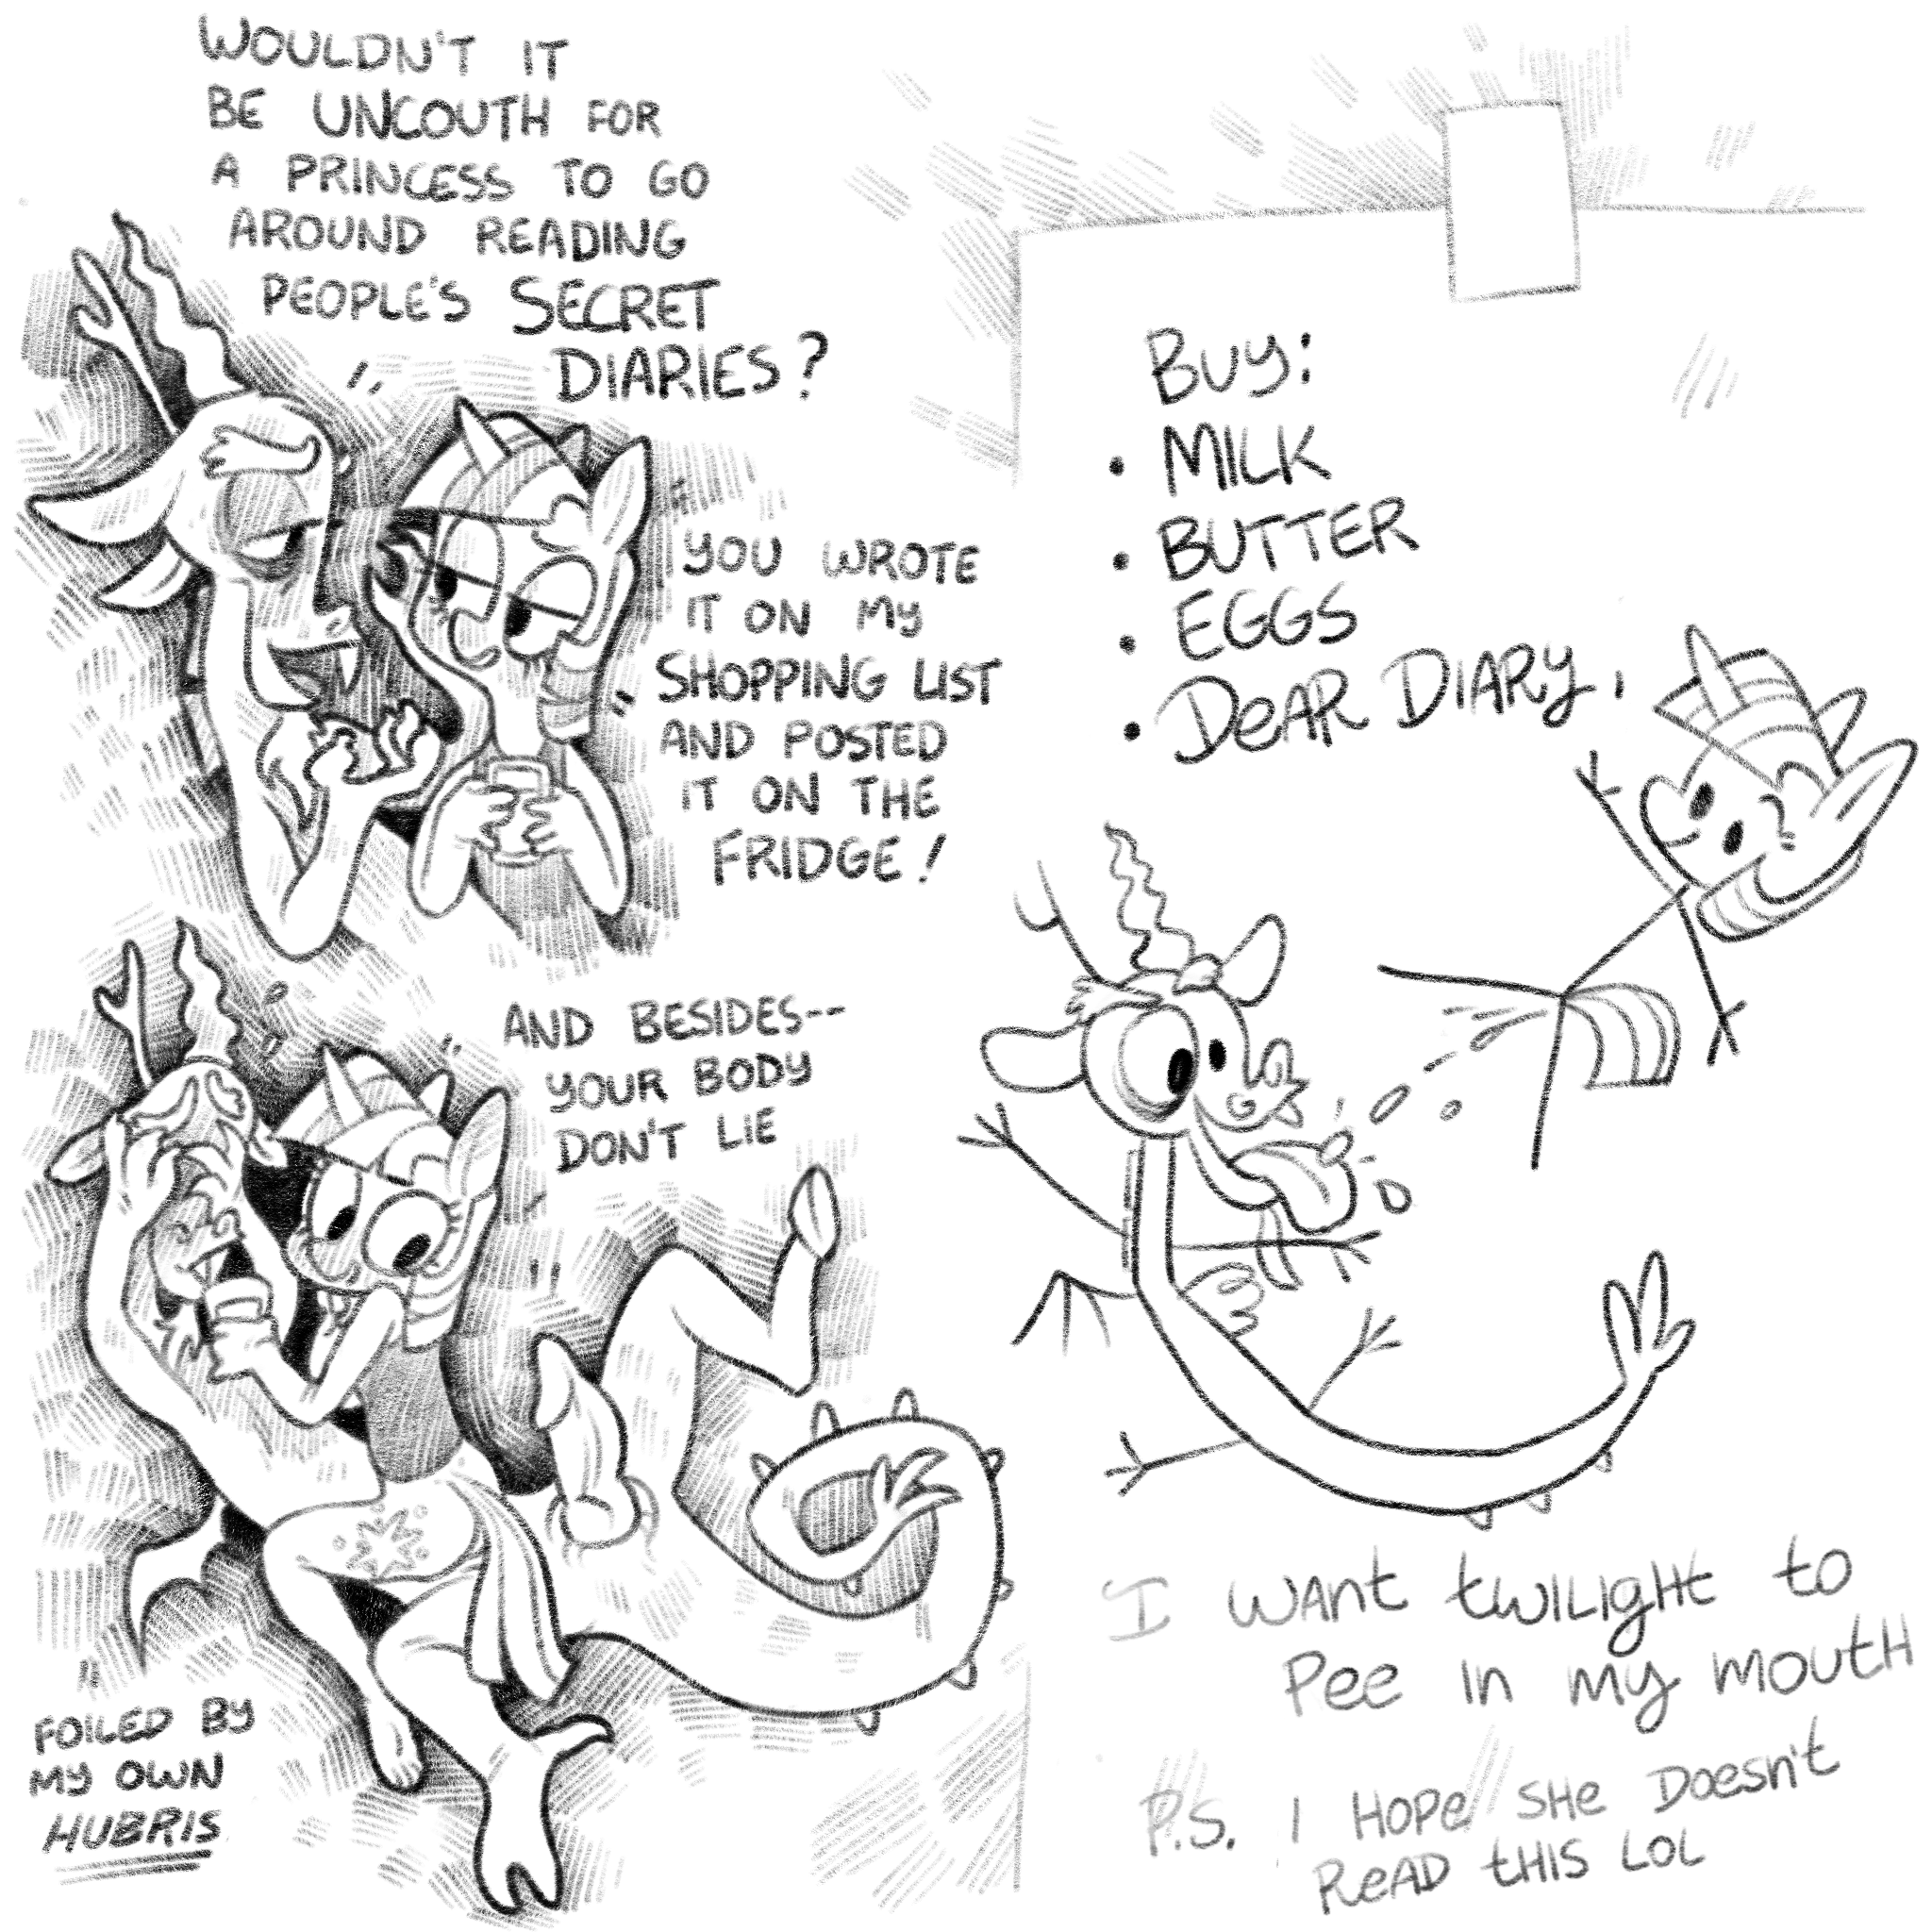 WOULDN'T IT
BE UNCOUTH FOR
A PRINCESS TO GO
AROUND READING
PEOPLE'S SECRET
DIARIES?
YOU WROTE
IT ON MY
SHOPPING LIST
AND POSTED
IT ON THE
FRIDGE!
AND BESIDES--
YOUR BODY
DON'T LIE
FOILED BY
MY OWN
HUBRIS
BUY:
• MILK
• BUTTER
• EGGS
• DeAR DIARY,
I WANt twiLigHt to
Pee IN my moutH
P.S. I HOPe SHe DOesn't
ReAD tHIS LOL